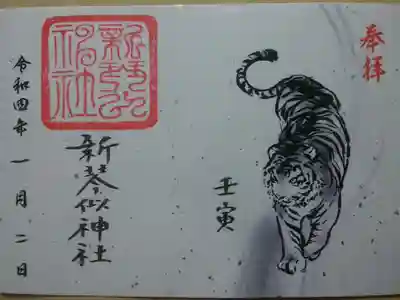 奉拝
壬寅
新琴似神社
新琴似神社
令和四年一月二日